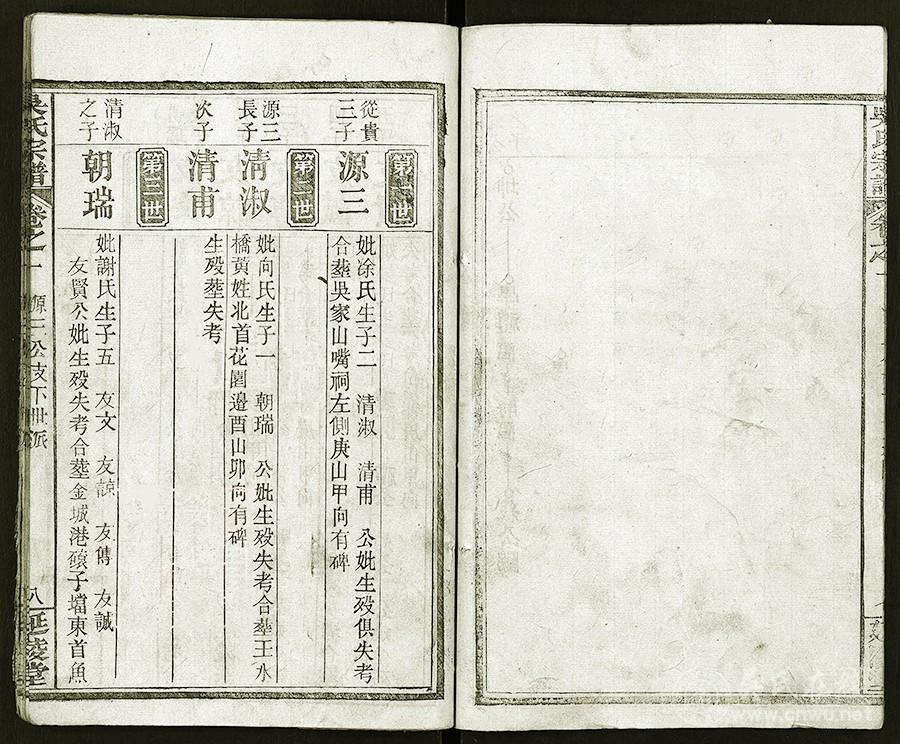 第一世
從貴
三子
源三
妣涂氏生子二 清淑 清甫 公妣生殁俱失考
合塟吳家山嘴祠左側庚山甲向有碑
第二世
源三
長子
清淑
妣向氏生子一 朝瑞 公妣生殁失考合塟王水
橋黃姓北首花園邊酉山卯向有碑
次子
清甫
生殁塟失考
第三世
清淑
之子
朝瑞
妣謝氏生子五 友文 友諒 友儁 友誠
友賢公妣生殁失考合塟金城港磧子壋東首魚
吳氏宗譜 卷之一 源三公支下世派 八 延陵堂
吳氏宗譜 卷之一
www.cnwu.net